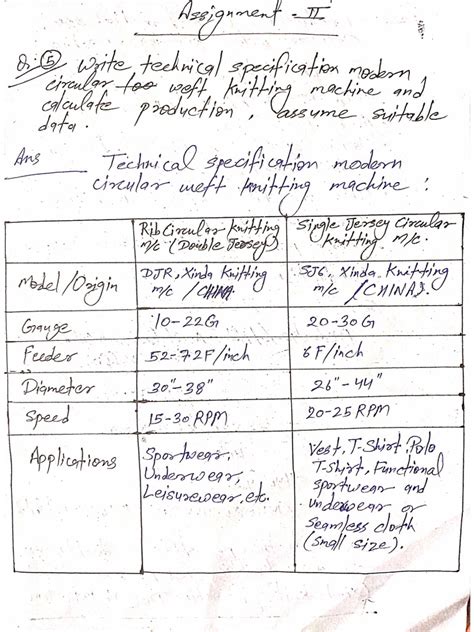 Assignment - II
Q:- (5) Write technical specification modern
circular too weft knitting machine and
calculate production, assume suitable
data.
Ans Technical specification modern
circular weft knitting machine :
Rib Circular Knitting
m/c (Double Jersey)
Single Jersey Circular
knitting m/c.
Model/Origin
DJR, Xinda Knitting
m/c / CHINA
SJ6, Xinda Knitting
m/c (CHINA).
Gauge
10-22G
20-30G
Feeder
52-72F/inch
6 F/inch
Diameter
30"-38"
26"-44"
Speed
15-30 RPM
20-25 RPM
Applications
Sportwear,
Underwear,
Leisurewear, etc.
Vest, T-Shirt, Polo
T-Shirt, Functional
sportwear and
underwear or
seamless cloth
(small size).